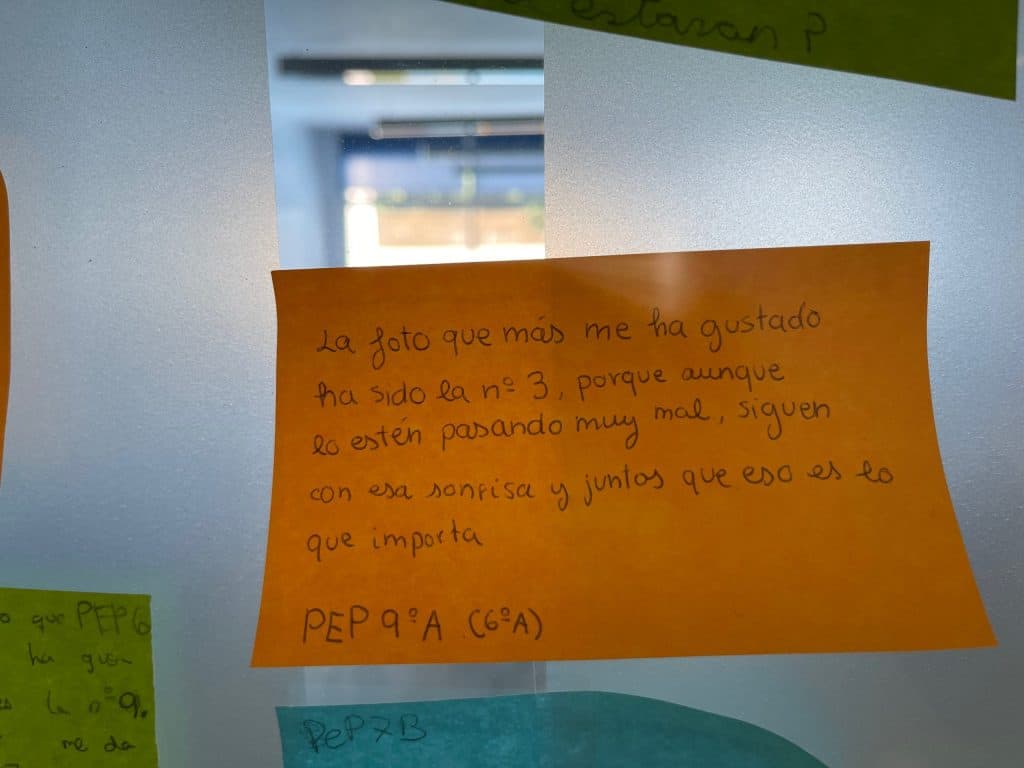 estaran?
La foto que más me ha gustado
ha sido la nº 3, porque aunque
lo estén pasando muy mal, siguen
con esa sonrisa y juntos que eso es lo
que importa
PEP 9ºA (6ºA)
o que PEP6
ha gus
la nº9.
me da
PeP7B